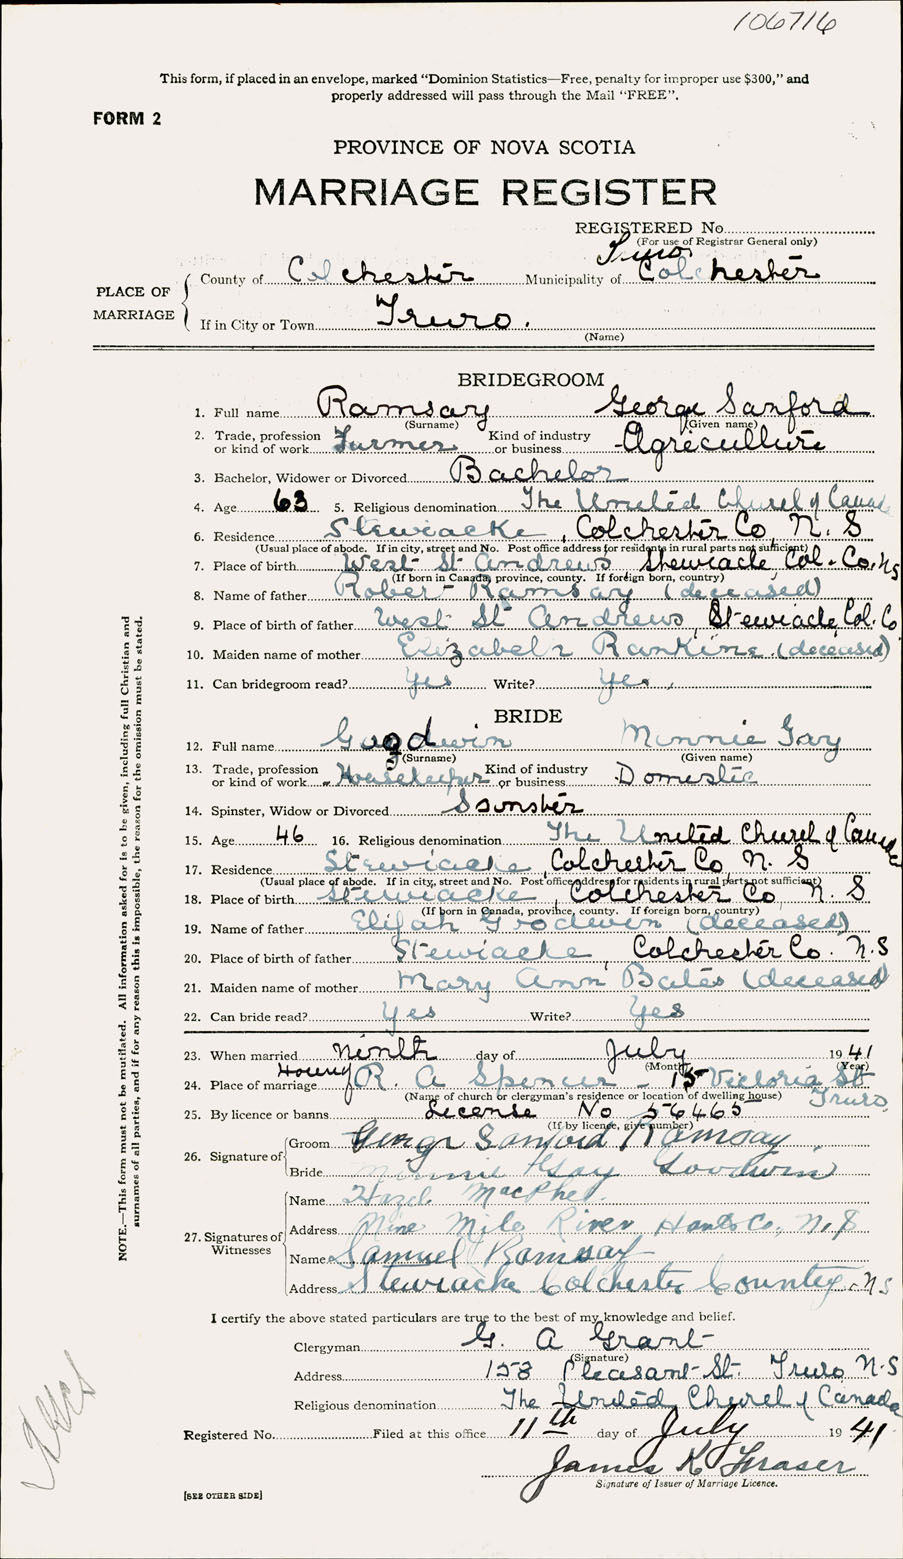 106716
This form, if placed in an envelope, marked “Dominion Statistics—Free, penalty for improper use $300,” and
properly addressed will pass through the Mail “FREE”.
FORM 2
PROVINCE OF NOVA SCOTIA
MARRIAGE REGISTER
REGISTERED No.
(For use of Registrar General only)
Truro
PLACE OF MARRIAGE
County of Colchester Municipality of Colchester
If in City or Town Truro.
(Name)
BRIDEGROOM
1. Full name Ramsay George Sanford
(Surname) (Given name)
2. Trade, profession or kind of work Farmer Kind of industry or business Agriculture
3. Bachelor, Widower or Divorced Bachelor
4. Age 63 5. Religious denomination The United Church of Canada
6. Residence Stewiacke, Colchester Co, N. S
(Usual place of abode. If in city, street and No. Post office address for residents in rural parts not sufficient)
7. Place of birth West St Andrews Stewiacke, Col. Co. N S
(If born in Canada, province, county. If foreign born, country)
8. Name of father Robert Ramsay (deceased)
9. Place of birth of father West St Andrews, Stewiacke, Col. Co
10. Maiden name of mother Elizabeth Rankine. (deceased)
11. Can bridegroom read? Yes Write? Yes,
BRIDE
12. Full name Goodwin Minnie Gay
(Surname) (Given name)
13. Trade, profession or kind of work Housekeeper Kind of industry or business Domestic
14. Spinster, Widow or Divorced
15. Age 46 16. Religious denomination The United Church of Canada
17. Residence Stewiacke, Colchester Co N. S
(Usual place of abode. If in city, street and No. Post office address for residents in rural parts not sufficient)
18. Place of birth Stewiacke, Colchester Co, N. S
(If born in Canada, province, county. If foreign born, country)
19. Name of father Elijah Goodwin (deceased)
20. Place of birth of father Stewiacke, Colchester Co. N.S
21. Maiden name of mother Mary Ann Bates (deceased
22. Can bride read? Yes Write? Yes
23. When married Ninth day of July 1941
(Month) (Year)
24. Place of marriage R. A Spencer - 15 Victoria St
(Name of church or clergyman's residence or location of dwelling house) Truro,
25. By licence or banns License No 56465
(If by licence, give number)
26. Signature of
Groom George Sanford Ramsay
Bride Minnie Gay Goodwin
27. Signatures of Witnesses
Name Hazel
Address Nine Mile River Hants Co., N.S
Name Samuel Ramsay
Address Stewiacke Colchester County. N S
I certify the above stated particulars are true to the best of my knowledge and belief.
Clergyman G. A Grant
(Signature)
Address 158 Pleasant St. Truro N.S
Religious denomination The United Church of Canada
Registered No. Filed at this office 11th day of July 1941
James K Fraser
Signature of Issuer of Marriage Licence.
[SEE OTHER SIDE]
NOTE.—This form must not be mutilated. All information asked for is to be given, including full Christian and
surnames of all parties, and if for any reason this is impossible, the reason for the omission must be stated.